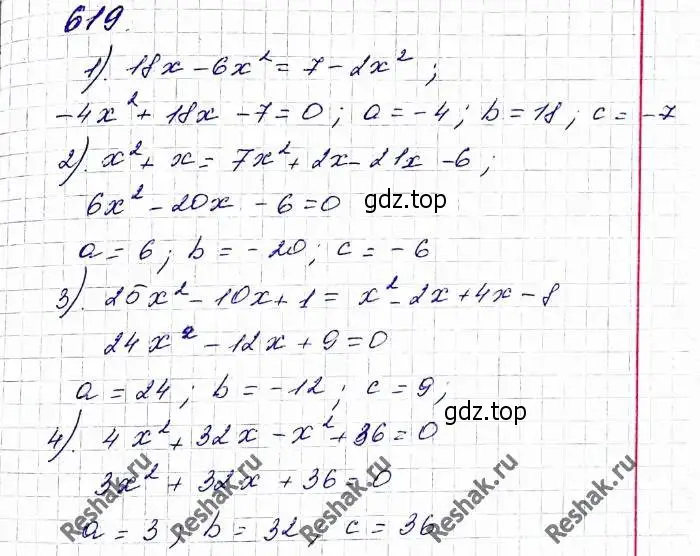 619.
1). 18x - 6x² = 7 - 2x² ;
-4x² + 18x - 7 = 0 ; a = -4 ; b = 18 ; c = -7
2). x² + x = 7x² + 2x - 21x - 6 ;
6x² - 20x - 6 = 0
gdz.top
a = 6 ; b = -20 ; c = -6
3). 25x² - 10x + 1 = x² - 2x + 4x - 8
24x² - 12x + 9 = 0
a = 24 ; b = -12 ; c = 9 ;
gdz.top
4). 4x² + 32x - x² + 36 = 0
3x² + 32x + 36 = 0
a = 3 ; b = 32 ; c = 36
Reshak.ru
Reshak.ru
Reshak.ru
Reshak.ru
Reshak.ru